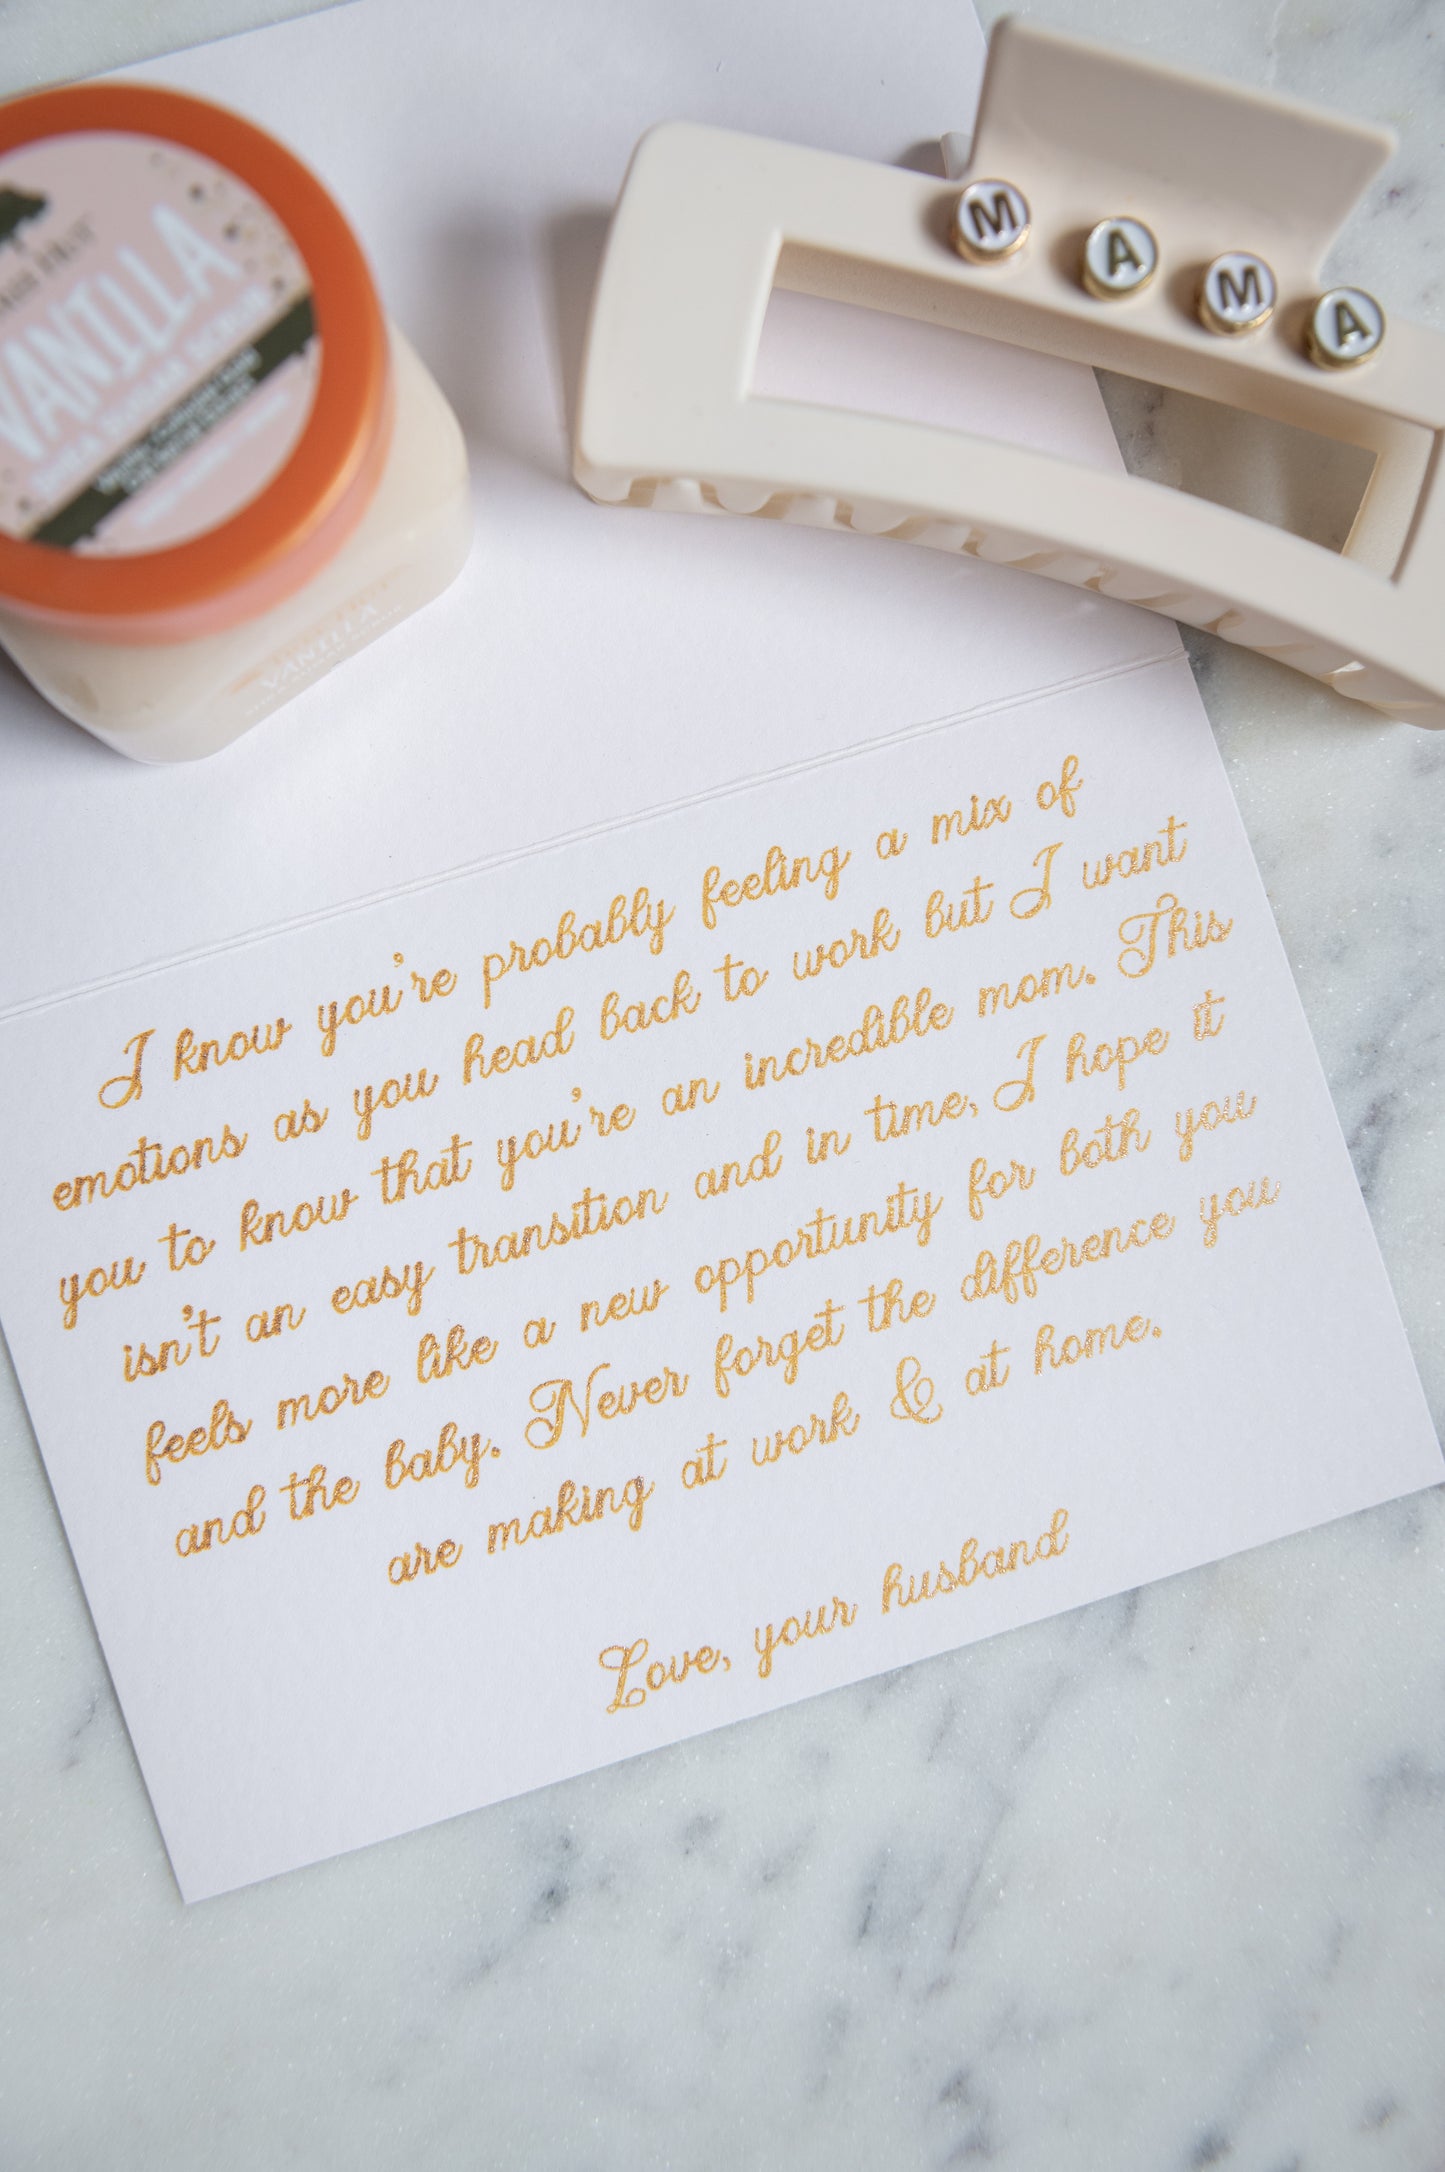 VANILLA
SHEA SUGAR SCRUB
VANILLA
M A M A
I know you're probably feeling a mix of
emotions as you head back to work but I want
you to know that you're an incredible mom. This
isn't an easy transition and in time, I hope it
feels more like a new opportunity for both you
and the baby. Never forget the difference you
are making at work & at home.
Love, your husband